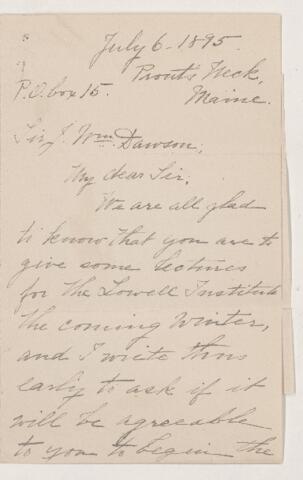 July 6 - 1895.
Prouts Neck,
P.O. box 15. Maine.
Sir J. Wm. Dawson,
My dear Sir,
We are all glad
to know that you are to
give some lectures
for the Lowell Institute
the coming winter,
and I write thus
early to ask if it
will be agreeable
to you to begin the